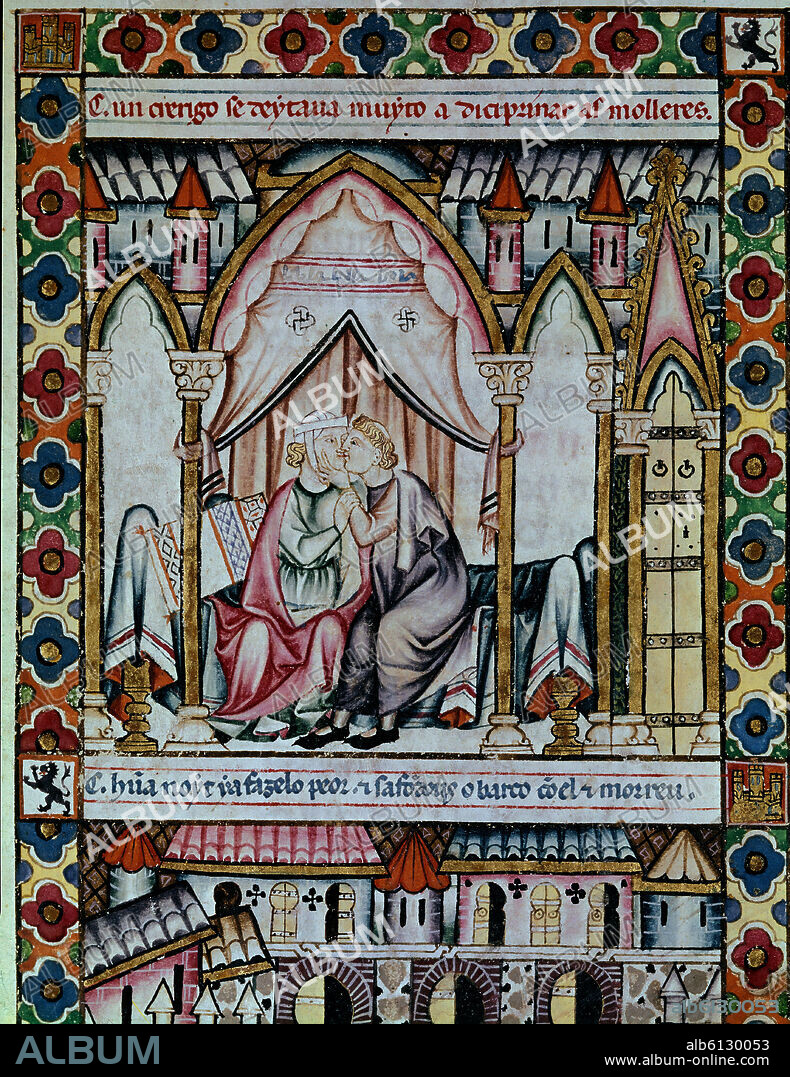 C. un crerigo se deytaua muyto a diciprinar as molleres.
C. hũa ya fazelo peor. ⁊ o barco cõ el ⁊ morreu.
ALBUM
alb6130053
www.album-online.com